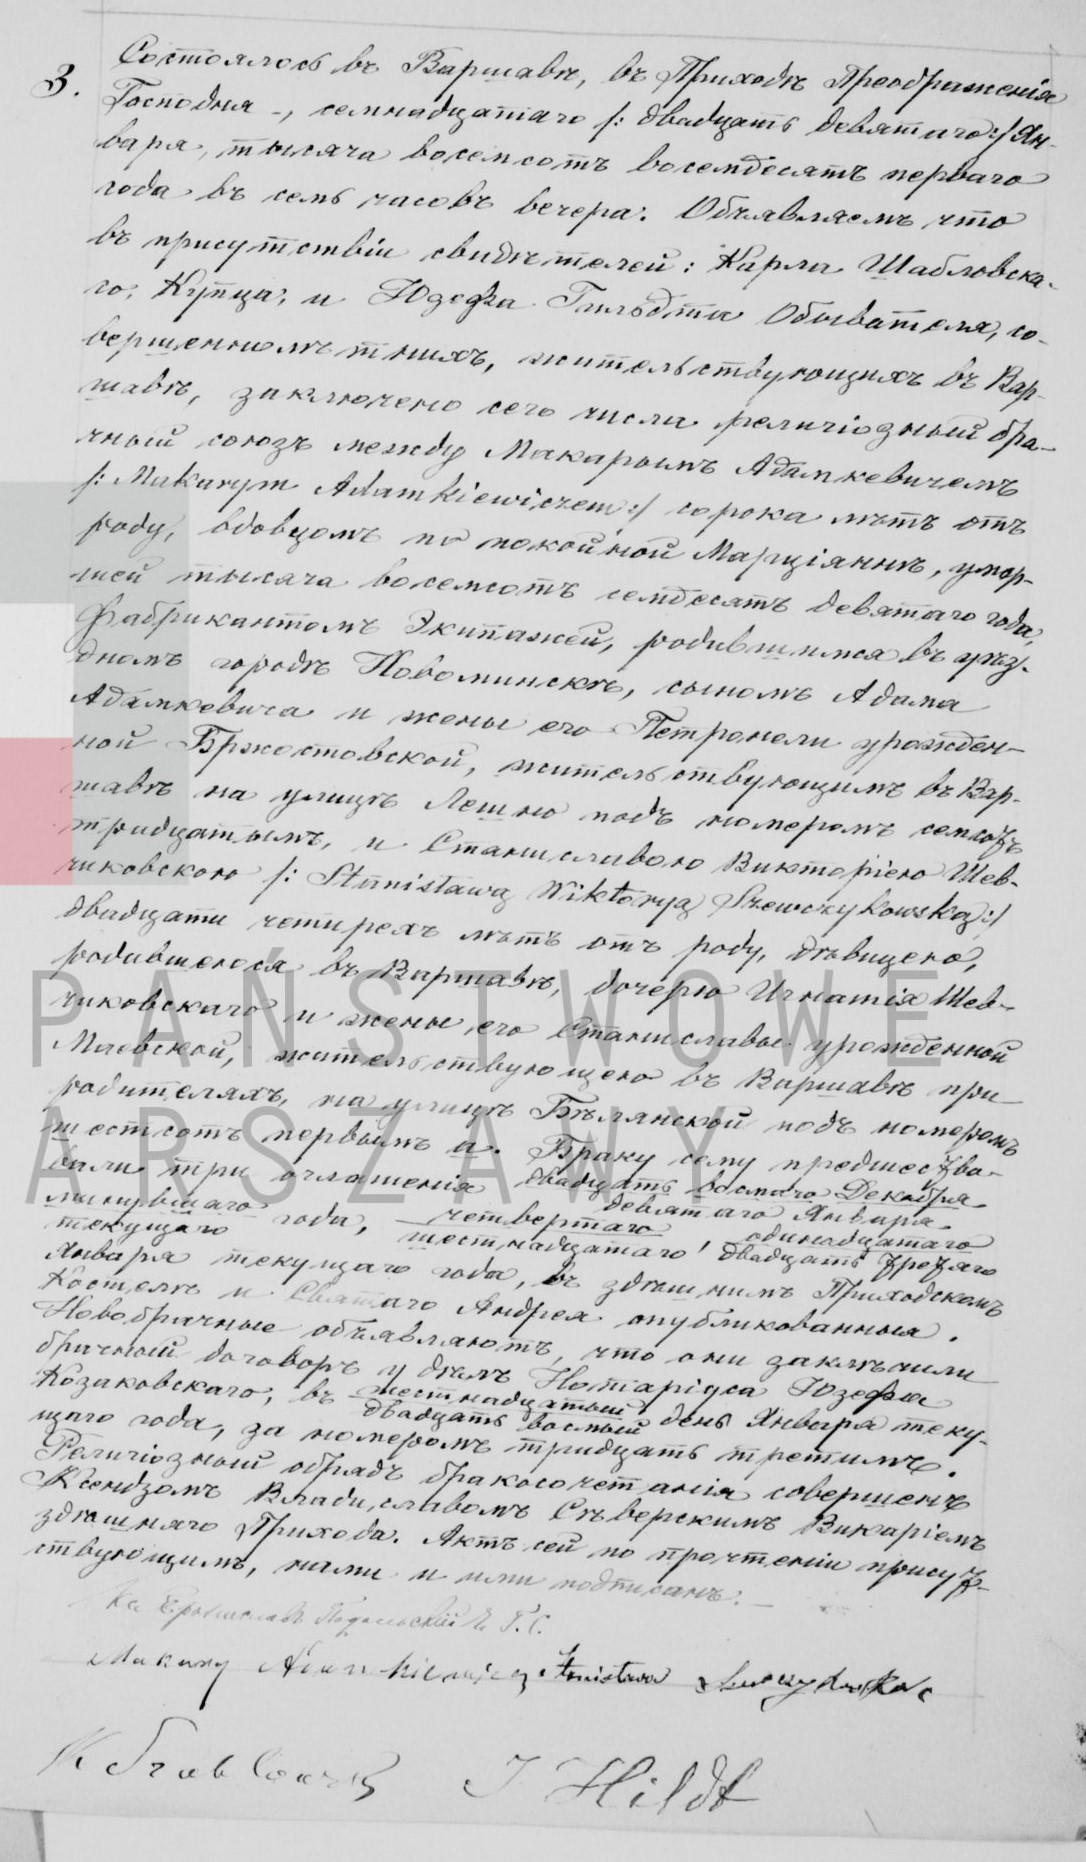 3.
Состоялось въ Варшавѣ, въ Приходѣ Преображенія
Господня -, семнадцатаго /: двадцать девятаго :/ Ян-
варя, тысяча восемсотъ восемдесятъ перваго
года въ семь часовъ вечера. Объявляемъ что
въ присутствіи свидѣтелей: Карла Шабловска-
го, Купца, и Юзефа Гильдта Обывателя, со-
вершеннолѣтнихъ, жительствующихъ въ Вар-
шавѣ, заключено сего числа религіозный бра-
чный союзъ между Макарымъ Адамкевичемъ
/: Makarym Adamkiewiczem :/ сорока лѣтъ отъ
роду, вдовцомъ по покойной Марціяннѣ, умер-
шей тысяча восемсотъ семдесятъ девятаго года,
фабрикантомъ Экипажей, родившимся въ уѣз-
дномъ городѣ Новоминскѣ, сыномъ Адама
Адамкевича и жены его Петронели урожден-
ной Бржостовской, жительствующимъ въ Вар-
шавѣ на улицѣ Лешно подъ номеромъ семсотъ
тридцатымъ, и Станиславою Викторіею Шев-
чиковскою /: Stanisławą Wiktoryą Szewczykowską :/
двадцати четырехъ лѣтъ отъ роду, дѣвицею,
родившеюся въ Варшавѣ, дочерю Игнатія Шев-
чиковскаго и жены его Станиславы урожденной
Маевской, жительствующею въ Варшавѣ при
родителяхъ, на улицѣ Бѣлянской подъ номеромъ
шестсотъ первымъ а. Браку сему предшество-
вали три оглашенія двадцать восмаго Декабря
девятаго Января
минувшаго года, четвертаго, одинадцатаго
текущаго шестнадцатаго двадцать третяго
Января текущаго года, въ здѣшнимъ Приходскомъ
Костелѣ и Святаго Андрея опубликованныя.
Новобрачные объявляютъ, что они заключили
брачный договоръ у дѣлъ Нотаріуса Юзефа
Козаковскаго, въ шестнадцатый день Января теку-
двадцать восмый
щаго года, за номеромъ тридцать третимъ.
Религіозный обрядъ бракосочетанія совершенъ
Ксендзомъ Владиславомъ Сѣверскимъ Викаріемъ
здѣшняго Прихода. Актъ сей по прочтеніи присут-
ствующимъ, нами и ими подписанъ. –
Makary Adamkiewicz Stanisława Szewczykowska
K Szabłowski J Hildt
PAŃSTWOWE
ARSZAWY